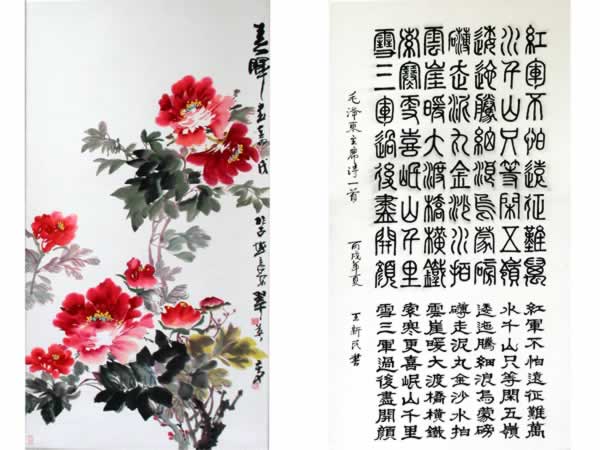 紅軍不怕遠征難萬
水千山只等閑五嶺
逶迤騰細浪烏蒙磅
礴走泥丸金沙水拍
雲崖暖大渡橋橫鐵
索寒更喜岷山千里
雪三軍過後盡開顏
毛泽東主席诗一首
丙戌年夏
王新民書
紅軍不怕遠征難萬
水千山只等閑五嶺
逶迤騰細浪烏蒙磅
礴走泥丸金沙水拍
雲崖暖大渡橋橫鐵
索寒更喜岷山千里
雪三軍過後盡開顏